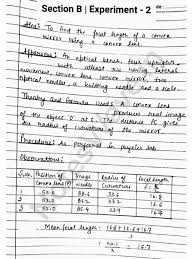 Section B | Experiment - 2
Aim: To find the focal length of a convex
mirror using a convex lens.
Apparatus: An optical bench, four uprights
with atleast one having lateral
movement, convex lens, convex mirror, two
optical needles, a knitting needle and a scale.
Theory and Formula used: A convex lens
produce real image
of the object 'O' at I. distance PC gives
the radius of curvature of the mirror.
Procedure: As performed in physics lab
Observations:
S.No. Position of convex lens (P) Image Needle Radius of Curvature Focal length
1. 50.0 83.6 33.6 16.8
2. 50.0 83.2 33.2 16.6
3. 50.0 83.4 33.4 16.7
Mean focal length: 16.8+16.6+16.7
3
= 50.1 = 16.7
3